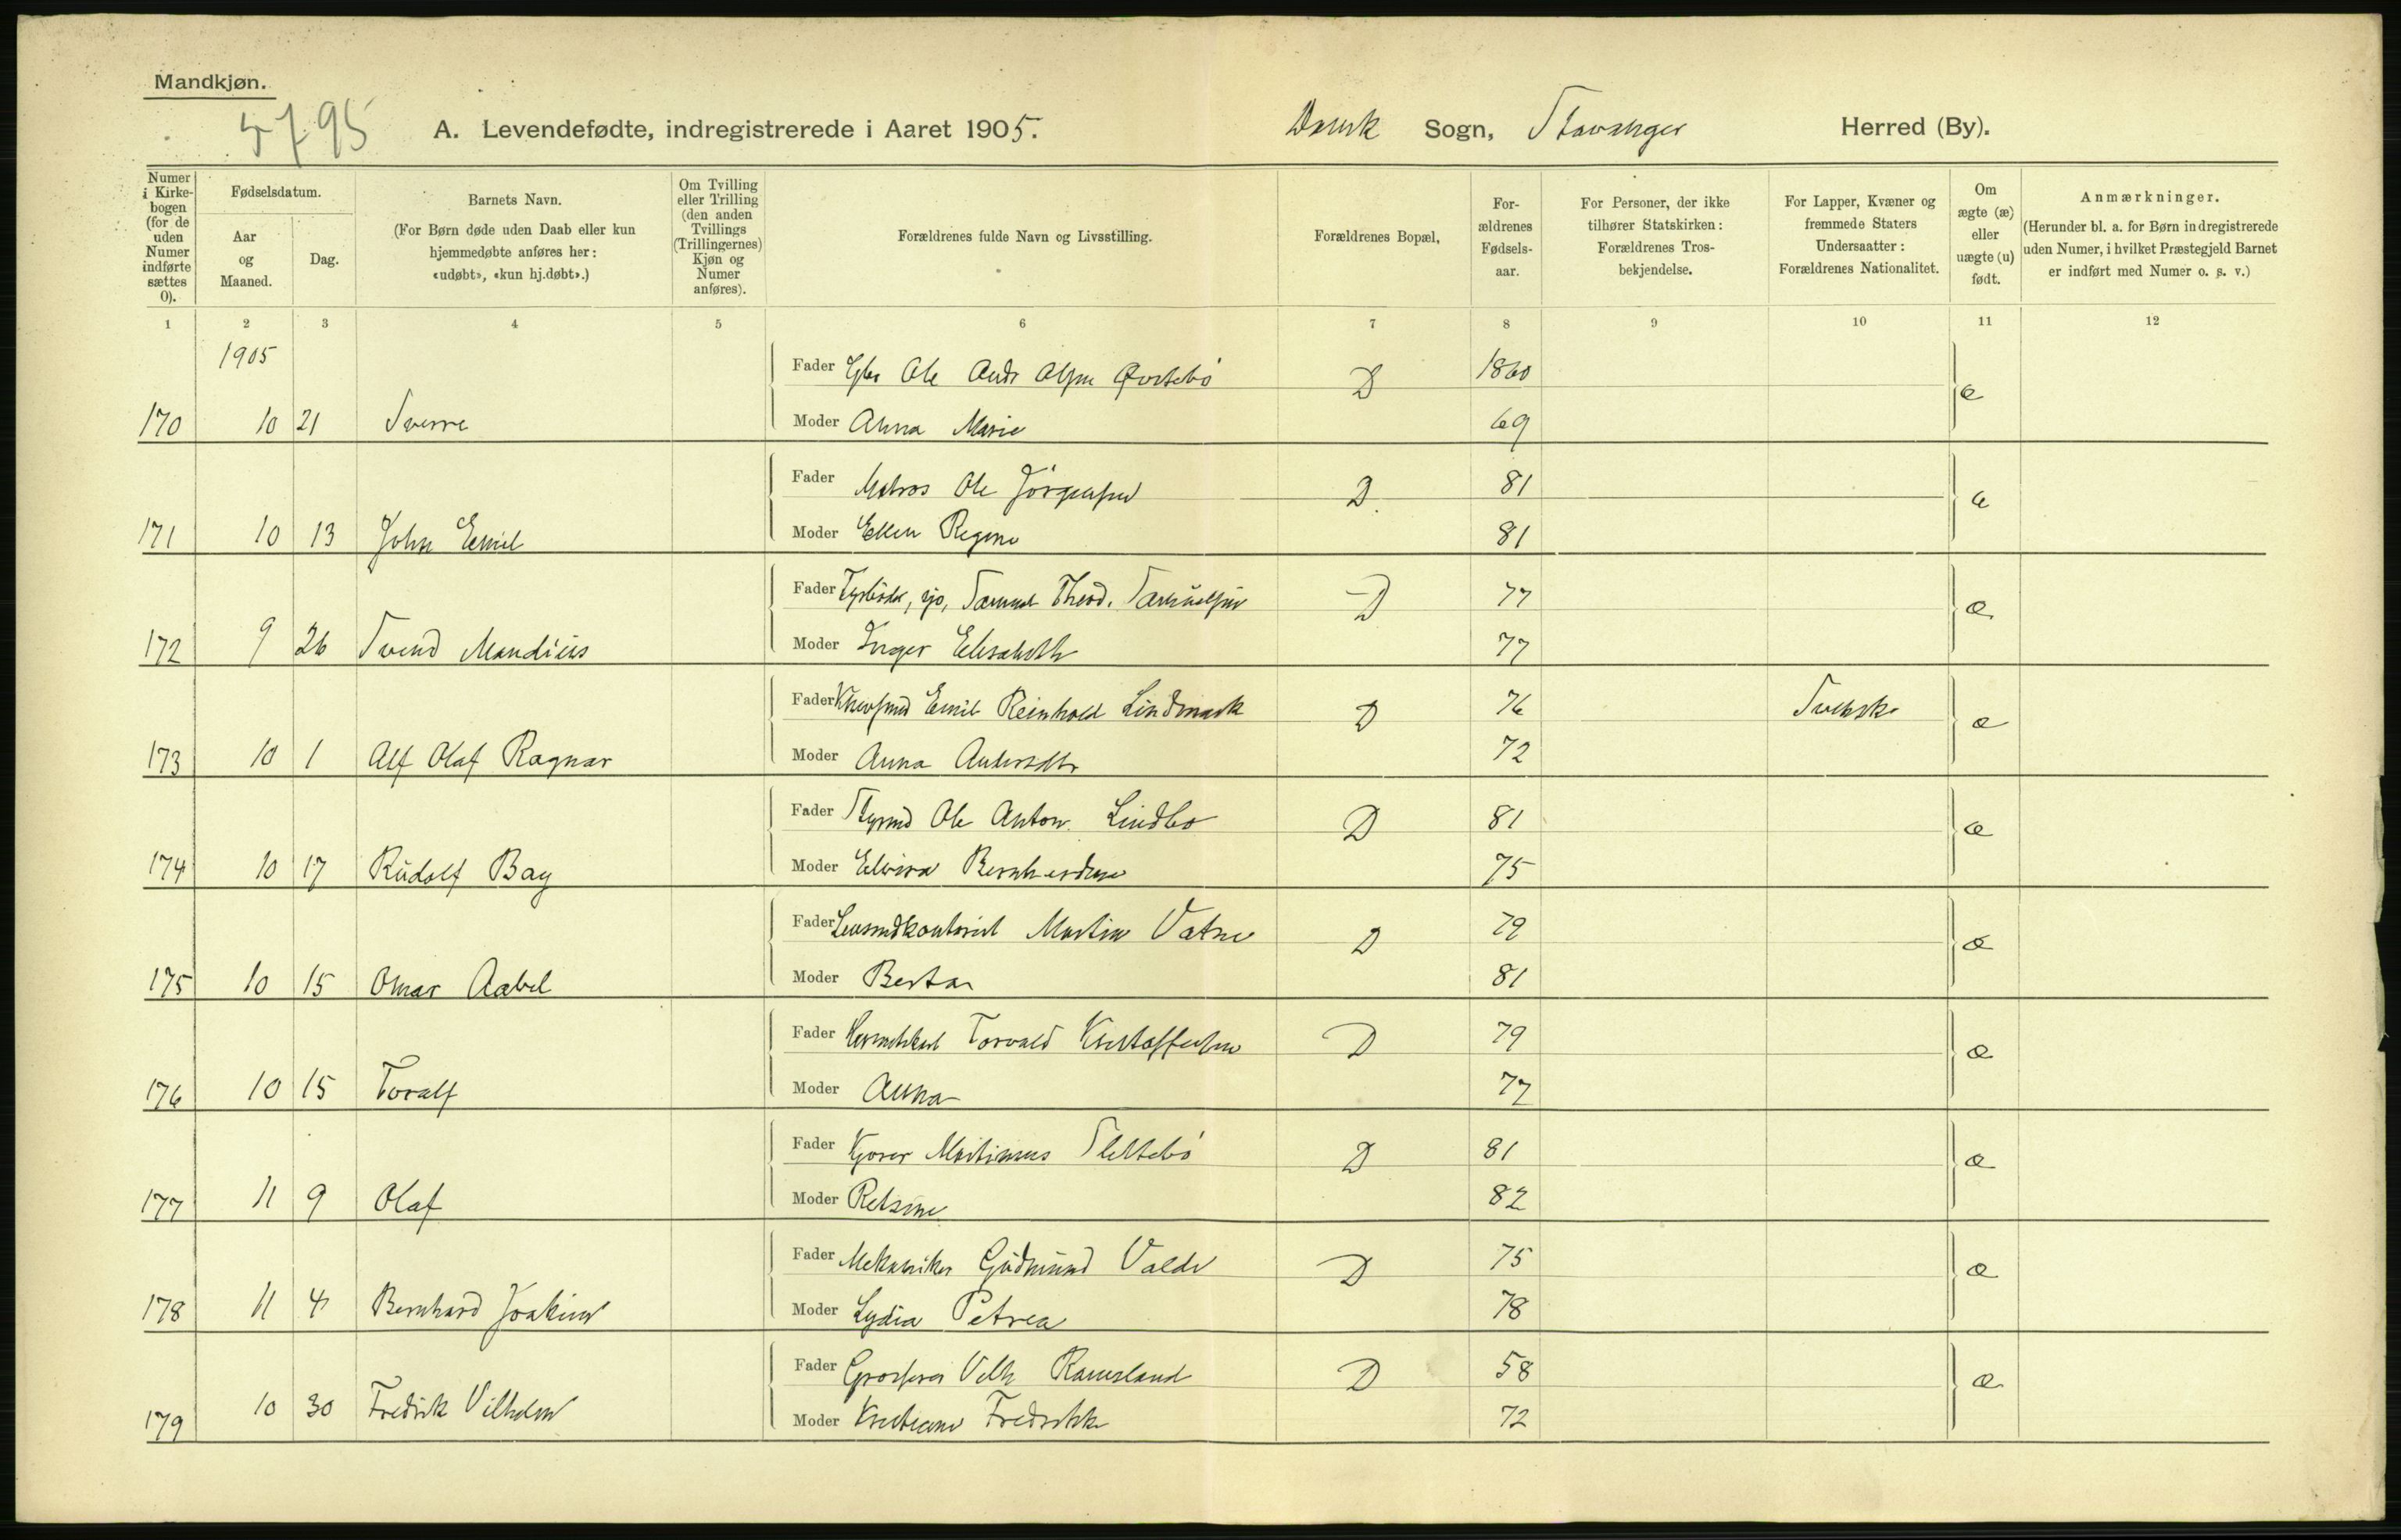 Mandkjøn.
5795
A. Levendefødte, indregistrerede i Aaret 1905. Domk Sogn, Stavanger Herred (By).
Numer i Kirkebogen (for de uden Numer indførte sættes 0).
Fødselsdatum.
Aar og Maaned.
Dag.
Barnets Navn.
(For Børn døde uden Daab eller kun hjemmedøbte anføres her: «udøbt», «kun hj.døbt».)
Om Tvilling eller Trilling (den anden Tvillings (Trillingernes) Kjøn og Numer anføres).
Forældrenes fulde Navn og Livsstilling.
Forældrenes Bopæl,
Forældrenes Fødselsaar.
For Personer, der ikke tilhører Statskirken: Forældrenes Trosbekjendelse.
For Lapper, Kvæner og fremmede Staters Undersaatter: Forældrenes Nationalitet.
Om ægte (æ) eller uægte (u) født.
Anmærkninger.
(Herunder bl. a. for Børn indregistrerede uden Numer, i hvilket Præstegjeld Barnet er indført med Numer o. s. v.)
1 2 3 4 5 6 7 8 9 10 11 12
1905
Fader Ole Andr Olsen D 1860 æ
170 10 21 Sverre Moder Anna Marie 69
Fader Matros Ole Jörgensen D. 81 æ
171 10 13 John Emil Moder Ellen Regine 81
Fader Fyrböder, Samuel Theod. Samuelsen D 77 æ
172 9 26 Svend Mandius Moder Inger Elisabeth 77
Fader Emil Reinhold Lindmark D 76 Svensk æ
173 10 1 Alf Olaf Ragnar Moder Anna Andersdtr 72
Fader Styrmd Ole Anton Lindbo D 81 æ
174 10 17 Rudolf Bay Moder Elvira Bernhardine 75
Fader Martin Vatne D 79 æ
175 10 15 Omar Aabel Moder Berta 81
Fader Torvald Kristoffersen D 79 æ
176 10 15 Toralf Moder Anna 77
Fader Kjører Martinius Slettebö D 81 æ
177 11 9 Olaf Moder 82
Fader Mekaniker Gudmund Valde D 75 æ
178 11 4 Bernhard Joakim Moder Lydia Petrea 78
Fader Grosserer Vilh Ramsland D 58 æ
179 10 30 Fredrik Vilhelm Moder Kristiane Fredrikke 72